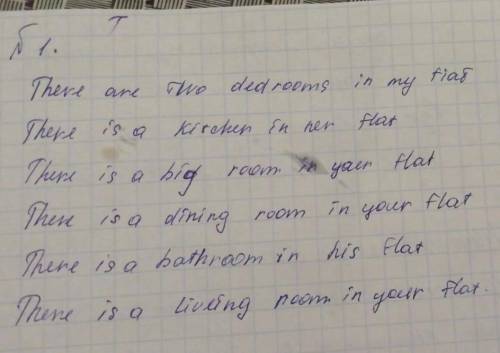 № 1.
There are two dedrooms in my flat
There is a kircher in her flat
There is a big room in yaer flat
There is a dining room in your flat
There is a bathroom in his flat
There is a liveing room in your flat.